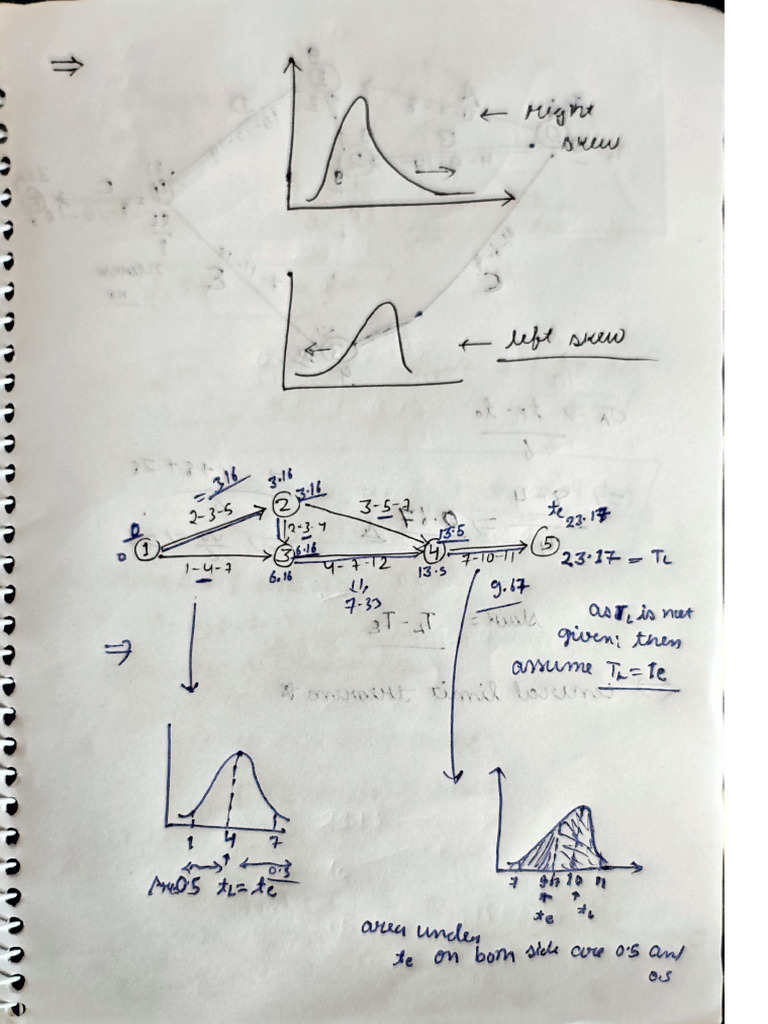 ⇒
← Right
skew
← left skew
= 3.16
3.16
3.16
2-3-5
2
3-5-7
te 23.17
0
0
1
2-3-4
13.5
5
3
6.16
4
7-10-11
23.17 = TL
1-4-7
6.16
4-7-12
13.5
⇓
7.33
9.67
as TL is not
given; then
assume TL = Te
⇒
1 4 7
0.5 tL = te 0.5
7 9.67 10 11
te tL
area under
te on both side are 0.5 and
0.5